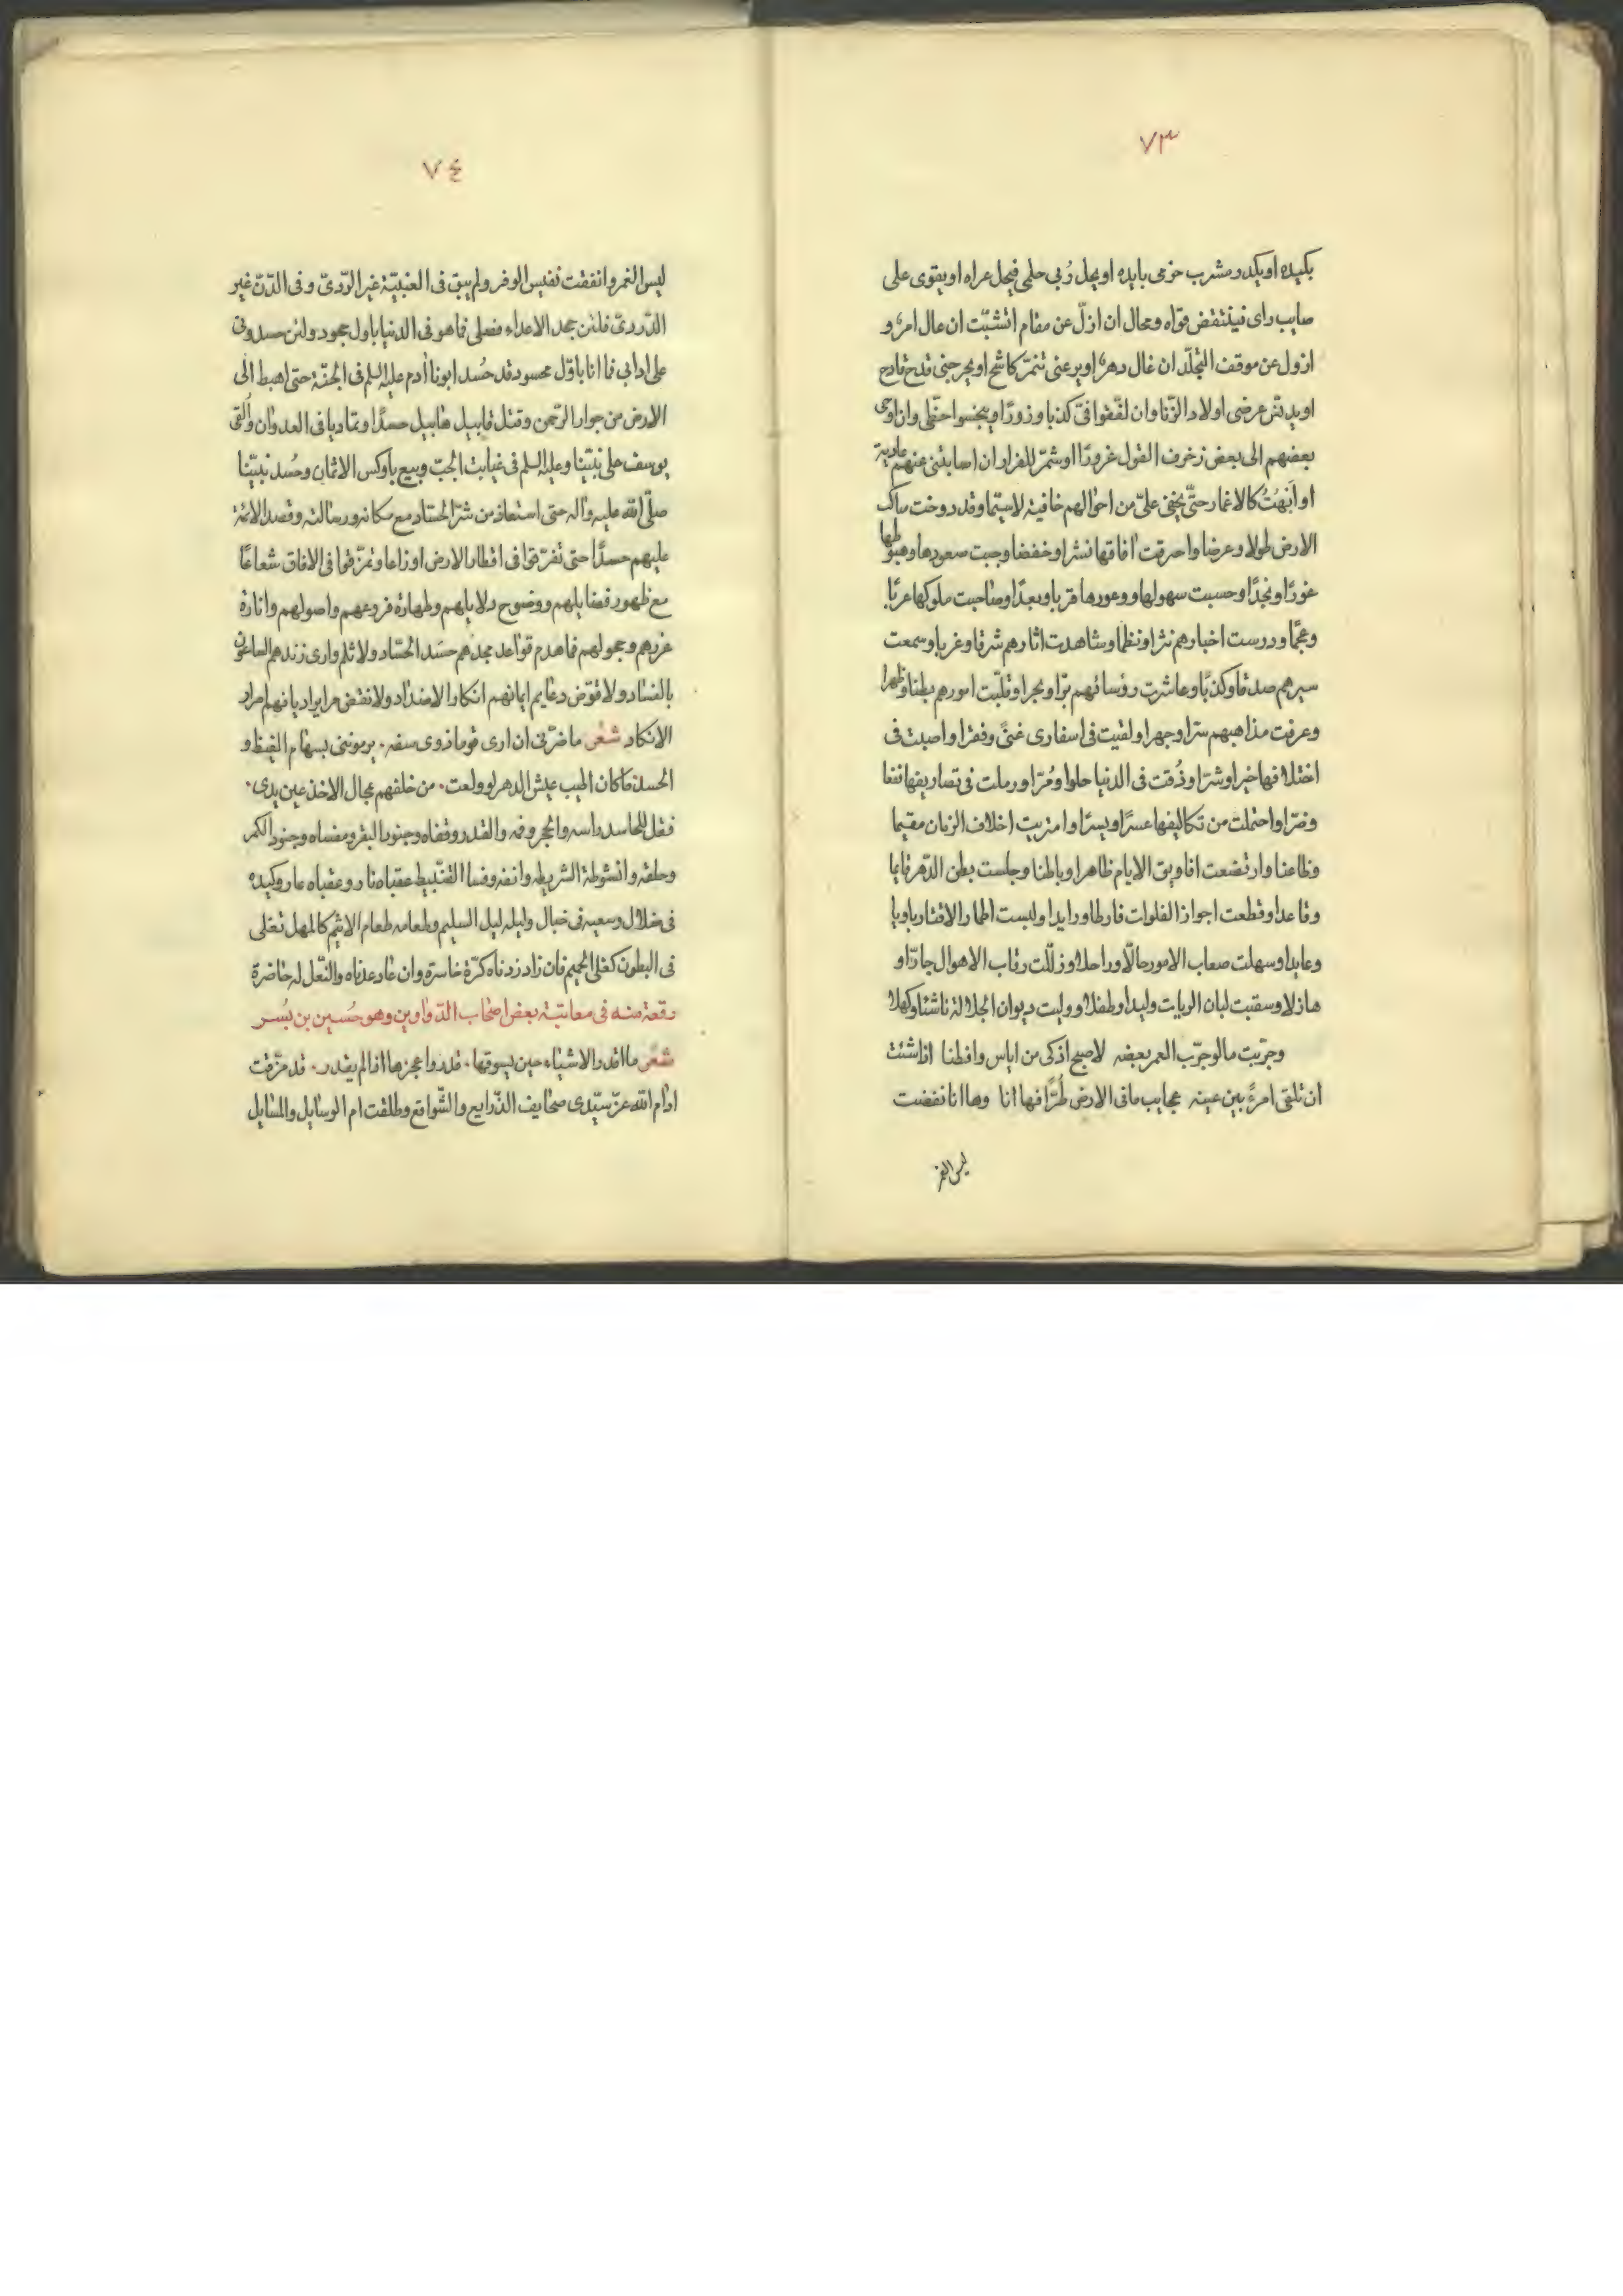 ٧٣
بكيده او يكدر مشرب حزمى بايده او يحل رُبى حلمى فيحل عراه او يقوى على
صايب راى فينتقض قواه ومحال ان ازلّ عن مقام اتشبّث ان عال امرٌ و
ازول عن موقف التجلّد ان غال دهرٌ او يرعنى تنمّر كاشح او يجرحنى قدح قادح
او يدنّس عرضى اولاد الزّنا وان لفّقوا فىّ كذبا وزورًا ويبخسوا حظّى وان اوحى
بعضهم الى بعض زخرف القول غرورًا او شمّر للفرار ان اصابتنى عنهم عادية
او اَبَهْتُ كالاغمار حتّى يخفى علىّ من احوالهم خافية لاسيّما وقد دوخت مسالك
الارض طولا وعرضا واحرقت افاقها نشرا وخفضا وجبت صعودها وهبوطها
غورًا ونجدًا وحسبت سهولها ووعورها قربا وبعدًا وصاحبت ملوكها عربًا
وعجمًا ودرست اخبارهم نثرا ونظما وشاهدت اثارهم شرقا وغربا وسمعت
سيرهم صدقا وكذبًا وعاشرت رؤسائهم برّا وبحرا وقلّبت امورهم بطنا وظهرا
وعرفت مذاهبهم سرّا وجهرا ولقيت فى اسفارى غنىً وفقرا واصبت فى
اختلافها خيرا وشرّا وذُقت فى الدنيا حلوا ومُرّا ورملت فى تصاريفها نفعا
وضرّا واحتملت من تكاليفها عسرًا ويسرًا وامتريت اخلاف الزمان مقيما
وظاعنا وارتضعت افاويق الايام ظاهرا وباطنا وجلست بطن الدّهر قايما
وقاعدا وقطعت اجواز الفلوات فارطا ورايدا ولبست اطمار الاقتار باديا
وعايدا وسهلت صعاب الامور حالّا وراحلا وذلّلت رقاب الاهوال جادّا و
هازلا وسقيت لبان الروايات وليدا وطفلا ووليت ديوان الجلالة ناشئا وكهلا
وجرّبت ما لو جرّب العمر بعضه لاصبح اذكى من اياس وافطنا اذا شئت
ان تلقى امرءً بين عينه عجايب ما فى الارض طُرًّا فها انا وها انا نفضت
ليس الغمر
٧٤
ليس الغمر وانفقت نفيس الوفر ولم يبق فى العنبيّة غير الرّدىّ وفى الدّنّ غير
الدّردىّ فلئن جحد الاعداء فضلى فما هو فى الدنيا باول مجحود ولئن حسدونى
على ادابى فما انا باوّل محسود قد حُسد ابونا آدم عليه السلم فى الجنّة حتى اهبط الى
الارض من جوار الرّحمن وقتل قابيل هابيل حسدًا وتماديا فى العدوان وأُلقى
يوسف على نبيّنا وعليه السلم فى غيابت الجبّ وبيع بأوكس الاثمان وحُسد نبيّنا
صلّى الله عليه وآله حتى استعاذ من شرّ الحسّاد مع مكانه ورسالته وقصد الائمة
عليهم حسدًا حتى تفرّقوا فى اقطار الارض اوزاعا وتمزّقوا فى الافاق شعاعًا
مع ظهور فضايلهم ووضوح دلايلهم وطهارة فروعهم واصولهم وانارة
غررهم وحجولهم فما هدم قواعد مجدهم حسَد الحسّاد ولا ثلم وارى زندهم الساعون
بالفساد ولا قوّض دعايم ايمانهم انكار الاضداد ولا نقض مراير اديانهم امرار
الانكاد شعر ما ضرّنى ان ارى قوما ذوى سفه ۰ يرموننى بسهام الغيظ و
الحسد ما كان اطيب عيش الدهر لو ولعت ۰ من خلفهم بمجال الاخذ عين يدى ۰
فقل للحاسد راسه والحجر وفمه والقدر وقفاه وجنود البقر ومفساه وجنود الكمر
وحلقه وانشوطة الشريطه وانفه وفسا القنّبيط عقباه نار وعقباه عار وكيده
فى ضلال وسعيه فى خبال وليله ليل السليم وطعامه طعام الاثيم كالمهل تغلى
فى البطون كغلى الحميم فان زاد زدناه كرّة خاسرة وان عاد عدناه والنّعل له حاضرة
رقعة منه فى معاتبة بعض اصحاب الدّواوين وهو حُسين بن بُسر
شعر ما اقدر الاشياء حين يسوقها ۰ قدر واعجزها اذا لم يقدر ۰ قد مزّقت
ادام الله عزّ سيّدى صحايف الذّرايع والشّوافع وطلقت ام الوسايل والمسايل